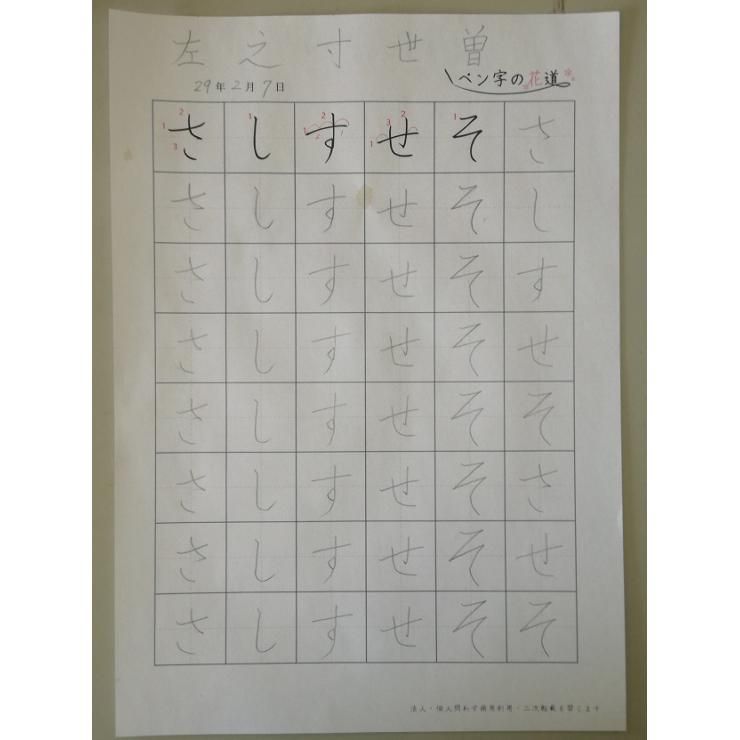 左之寸世曽
29年2月7日 ペン字の花道
さしすせそさ
さしすせそし
さしすせそす
さしすせそせ
さしすせそそ
さしすせそさ
さしすせそせ
さしすせそそ
法人・個人問わず商用利用・二次転載を禁じます